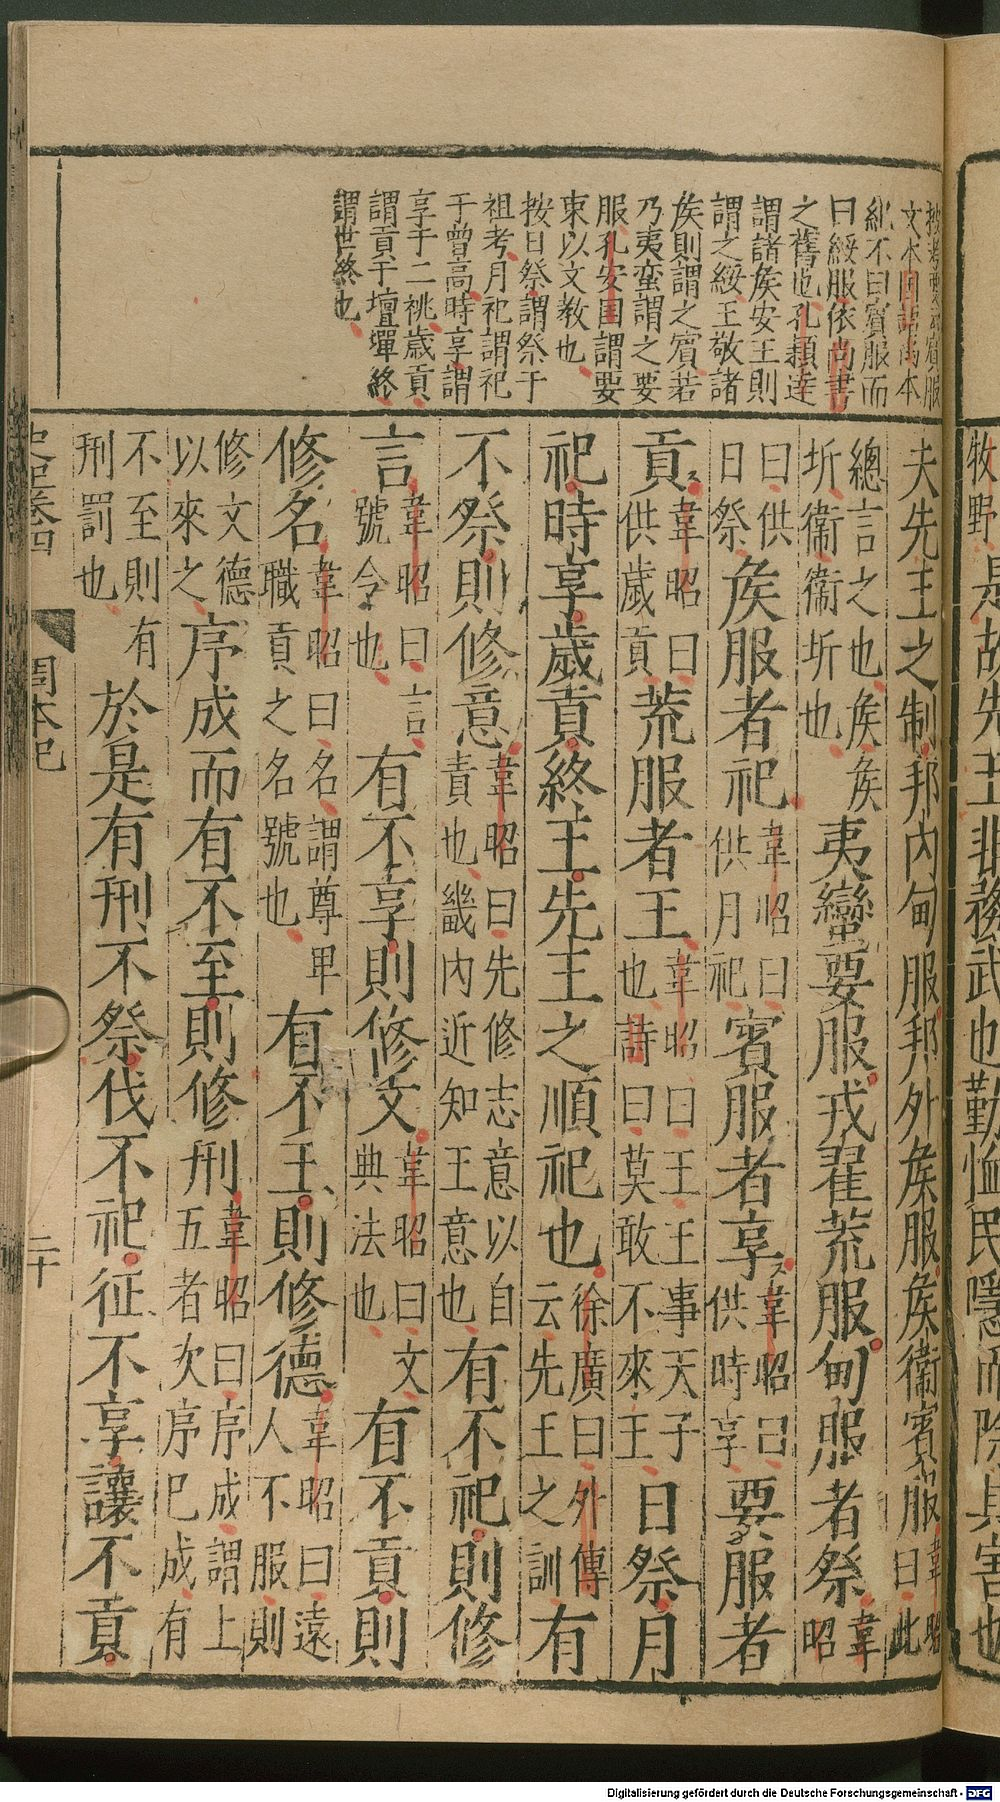 牧野是故先王非務武也勤恤民隱而除其害也
按考要云賓服
文本国語為本
紀不曰賓服而
曰綏服依尚書
之舊也孔頴達
謂諸矦安王則
謂之綏王敬諸
矦則謂之賓若
乃夷蛮謂之要
服孔安国謂要
束以文教也
按日祭謂祭于
祖考月祀謂祀
于曾高時享謂
享于二祧歳貢
謂貢于壇墠終
謂世終也
夫先王之制邦內甸服邦外矦服矦衞賓服韋昭曰此
總言之也矦矦圻衞衞圻也夷蠻要服戎翟荒服甸服者祭韋昭
曰供日祭矦服者祀韋昭曰供月祀賓服者享韋昭曰供時享要服者
貢韋昭曰供歲貢荒服者王韋昭曰王王事天子也詩曰莫敢不來王日祭月
祀時享歲貢終王先王之順祀也徐廣曰外傳云先王之訓有
不祭則修意韋昭曰先修志意以自責也畿內近知王意也有不祀則修
言韋昭曰言號令也有不享則修文韋昭曰文典法也有不貢則
修名韋昭曰名謂尊卑職貢之名號也有不王則修德韋昭曰遠人不服則
修文德以來之序成而有不至則修刑韋昭曰序成謂上五者次序已成有
不至則有刑罰也於是有刑不祭伐不祀征不享讓不貢
史記卷四 周本紀 二十
Digitalisierung gefördert durch die Deutsche Forschungsgemeinschaft - DFG